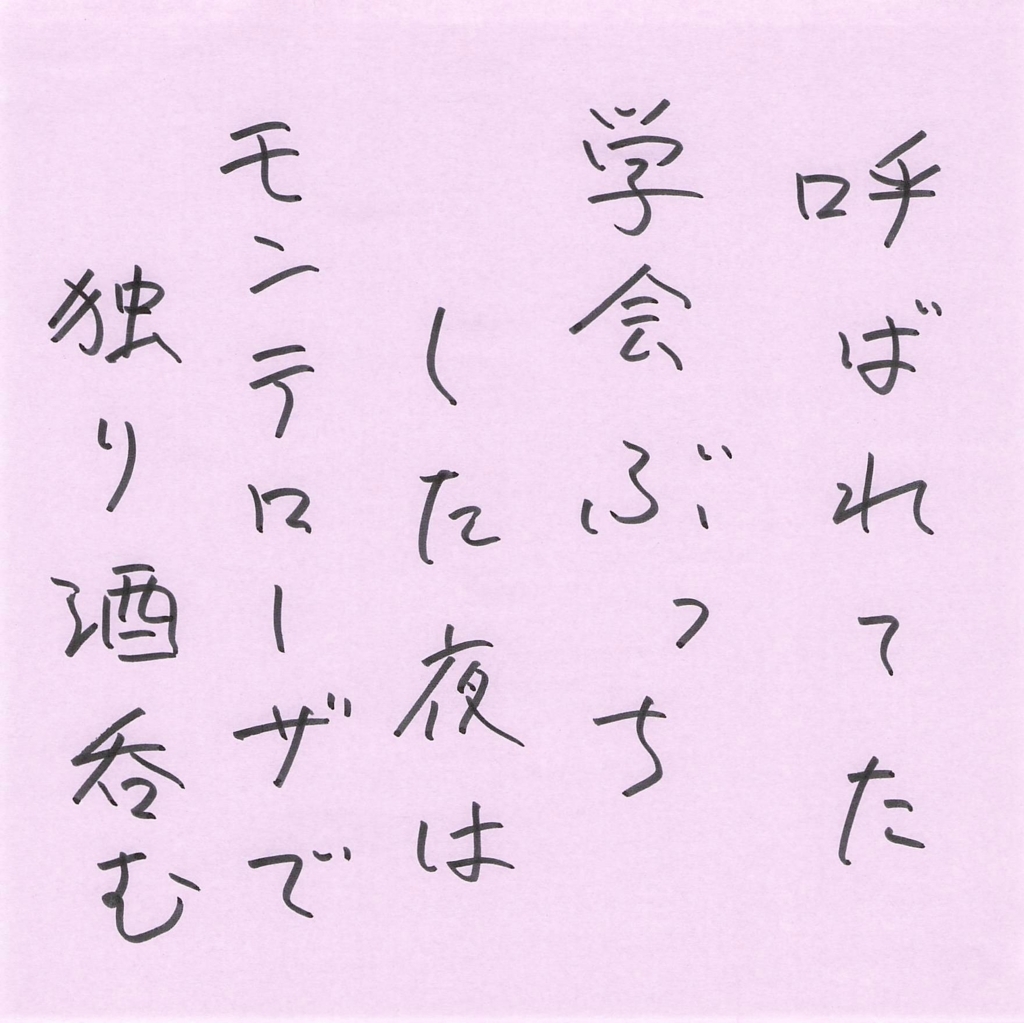 呼ばれてた
学会ぶっち
した夜は
モンテローザで
独り酒呑む